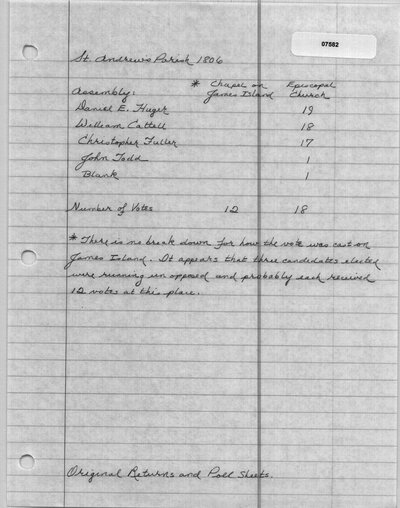 07582
St. Andrews Parish 1806
* Chapel on Episcopal
Assembly: James Island Church
Daniel E. Huger 19
William Cattell 18
Christopher Fuller 17
John Todd 1
Blank 1
Number of Votes 12 18
* There is no break down for how the vote was cast on
James Island. It appears that three candidates elected
were running un opposed and probably each received
12 votes at this place.
Original Returns and Poll Sheets.